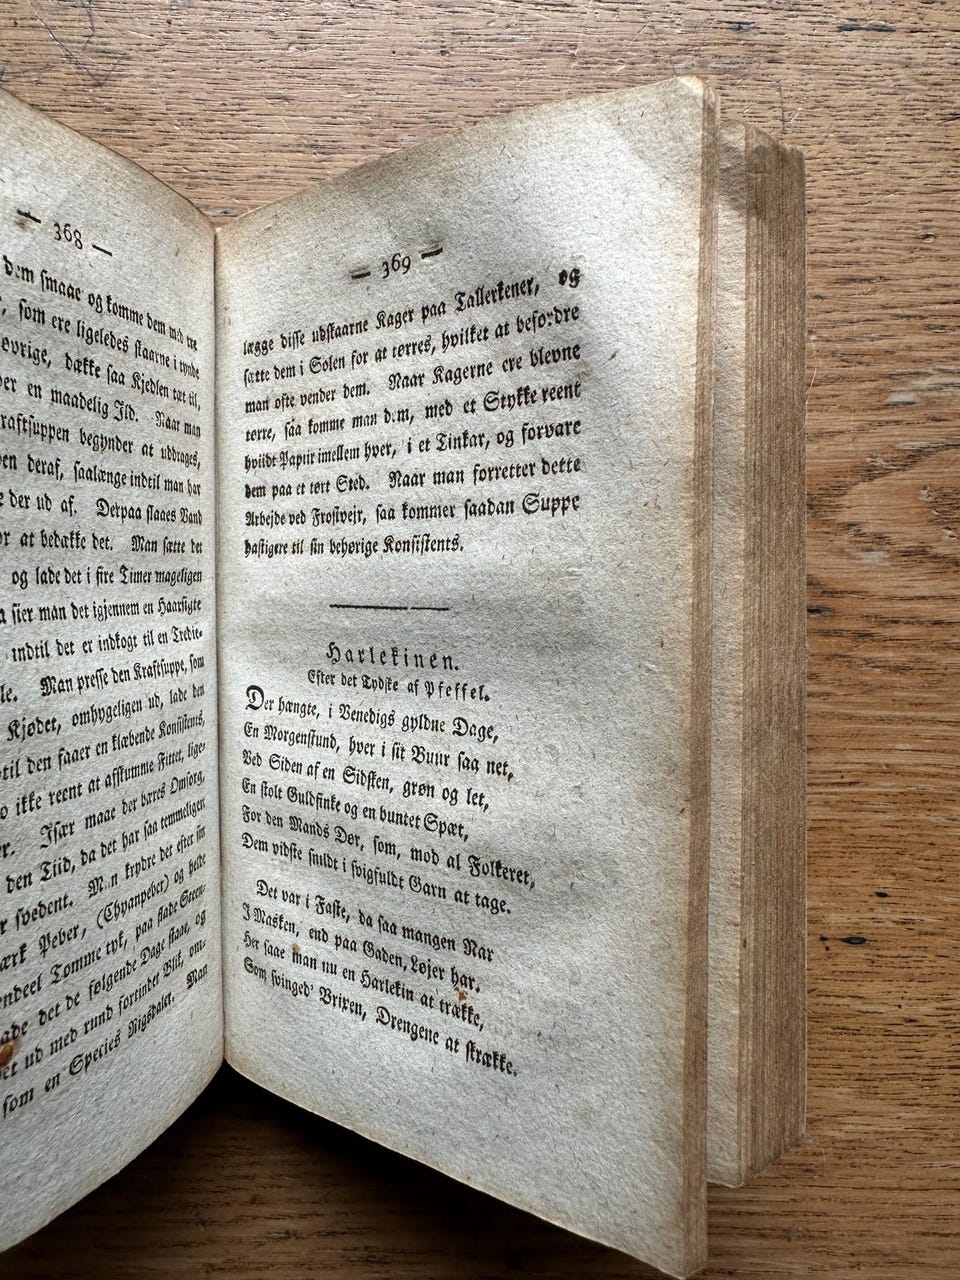 — 368 —
dem smaae og komme dem med tre
, som ere ligeledes skaarne i tynde
evrige, dække saa Kjedlen tæt til,
ver en maadelig Ild. Naar man
raftsuppen begynder at uddrages,
pen deraf, saalænge indtil man har
e der ud af. Derpaa slaaes Vand
or at bedække det. Man sætte det
og lade det i fire Timer mageligen
a sier man det igjennem en Haarsigte
indtil det er indkogt til en Tredie-
le. Man presse den Kraftsuppe, som
Kjødet, omhyggeligen ud, lade den
til den faaer en klæbende Konsistents,
o ikke reent at afskumme Fittet, lige-
er. Især maae der bæres Omsorg,
den Tiid, da det har saa temmeligen
r svedent. Man krydre det efter sin
ærk Peber, (Chyanpeber) og helde
endeel Tomme tyk, paa flade Steen-
ade det de følgende Dage staae, og
et ud med rund fortindet Blik, om-
som en Species Rigsdaler. Man
— 369 —
lægge disse udskaarne Kager paa Tallerkener, og
sætte dem i Solen for at tørres, hvilket at befordre
man ofte vender dem. Naar Kagerne ere blevne
tørre, saa komme man dem, med et Stykke reent
hviidt Papiir imellem hver, i et Tinkar, og forvare
dem paa et tørt Sted. Naar man forretter dette
Arbejde ved Frostvejr, saa kommer saadan Suppe
hastigere til sin behørige Konsistents.
Harlekinen.
Efter det Tydske af Pfeffel.
Der hængte, i Venedigs gyldne Dage,
En Morgenstund, hver i sit Buur saa net,
Ved Siden af en Sidsken, grøn og let,
En stolt Guldfinke og en buntet Spæt,
For den Mands Dør, som, mod al Folkeret,
Dem vidste snildt i svigfuldt Garn at tage.
Det var i Faste, da saa mangen Nar
I Masken, end paa Gaden, Løjer har.
Her saae man nu en Harlekin at trække,
Som svinged' Brixen, Drengene at skrække.